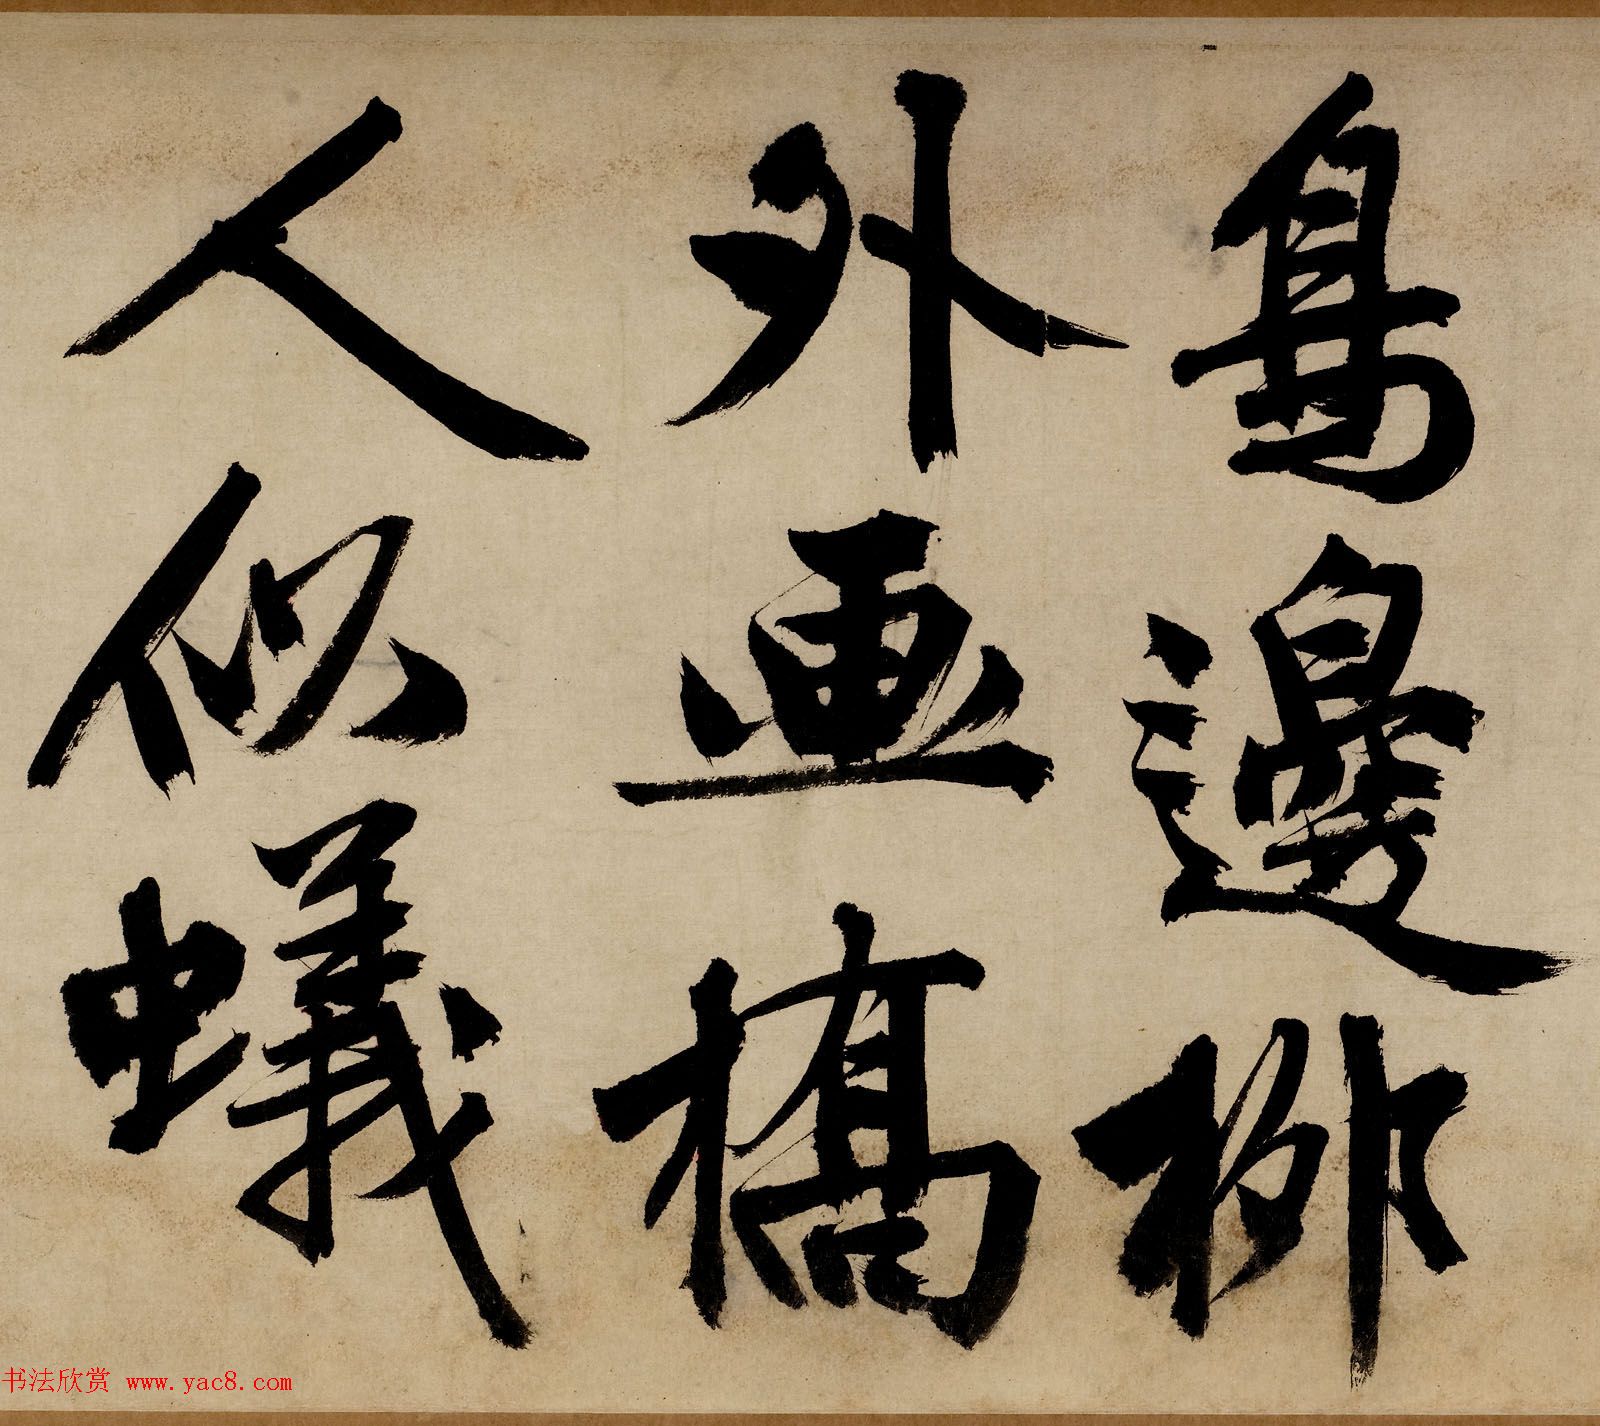 鳥邊柳
外画橋
人似蟻
书法欣赏 www.yac8.com